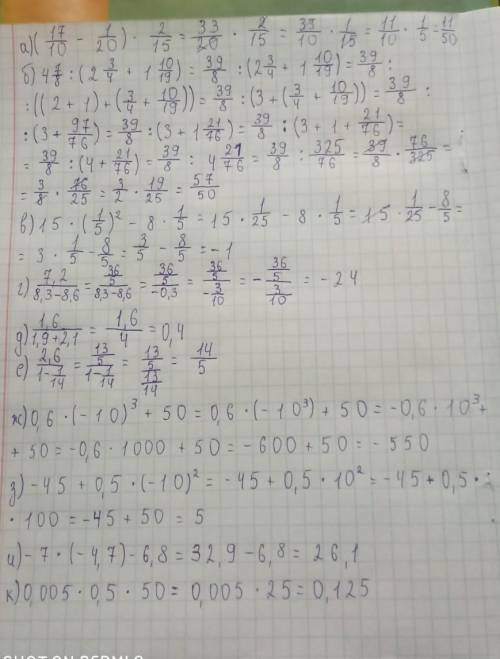 а) (17/10 - 1/20) · 2/15 = 33/20 · 2/15 = 33/10 · 1/15 = 11/10 · 1/5 = 11/50
б) 4 7/8 : (2 3/4 + 1 10/19) = 39/8 : (2 3/4 + 1 10/19) = 39/8 :
: ((2 + 1) + (3/4 + 10/19)) = 39/8 : (3 + (3/4 + 10/19)) = 39/8 :
: (3 + 97/76) = 39/8 : (3 + 1 21/76) = 39/8 : (3 + 1 + 21/76) =
= 39/8 : (4 + 21/76) = 39/8 : 4 21/76 = 39/8 : 325/76 = 39/8 · 76/325 =
= 3/8 · 76/25 = 3/2 · 19/25 = 57/50
в) 15 · (1/5)² - 8 · 1/5 = 15 · 1/25 - 8 · 1/5 = 15 · 1/25 - 8/5 =
= 3 · 1/5 - 8/5 = 3/5 - 8/5 = -1
г) 7,2/(8,3-8,6) = (36/5)/(8,3-8,6) = (36/5)/(-0,3) = (36/5)/(-3/10) = -(36/5)/(3/10) = -24
д) 1,6/(1,9+2,1) = 1,6/4 = 0,4
е) 2,6/(1-1/14) = (13/5)/(1-1/14) = (13/5)/(13/14) = 14/5
ж) 0,6 · (-10)³ + 50 = 0,6 · (-10³) + 50 = -0,6 · 10³ +
+ 50 = -0,6 · 1000 + 50 = -600 + 50 = -550
з) -45 + 0,5 · (-10)² = -45 + 0,5 · 10² = -45 + 0,5 ·
· 100 = -45 + 50 = 5
и) -7 · (-4,7) - 6,8 = 32,9 - 6,8 = 26,1
к) 0,005 · 0,5 · 50 = 0,005 · 25 = 0,125